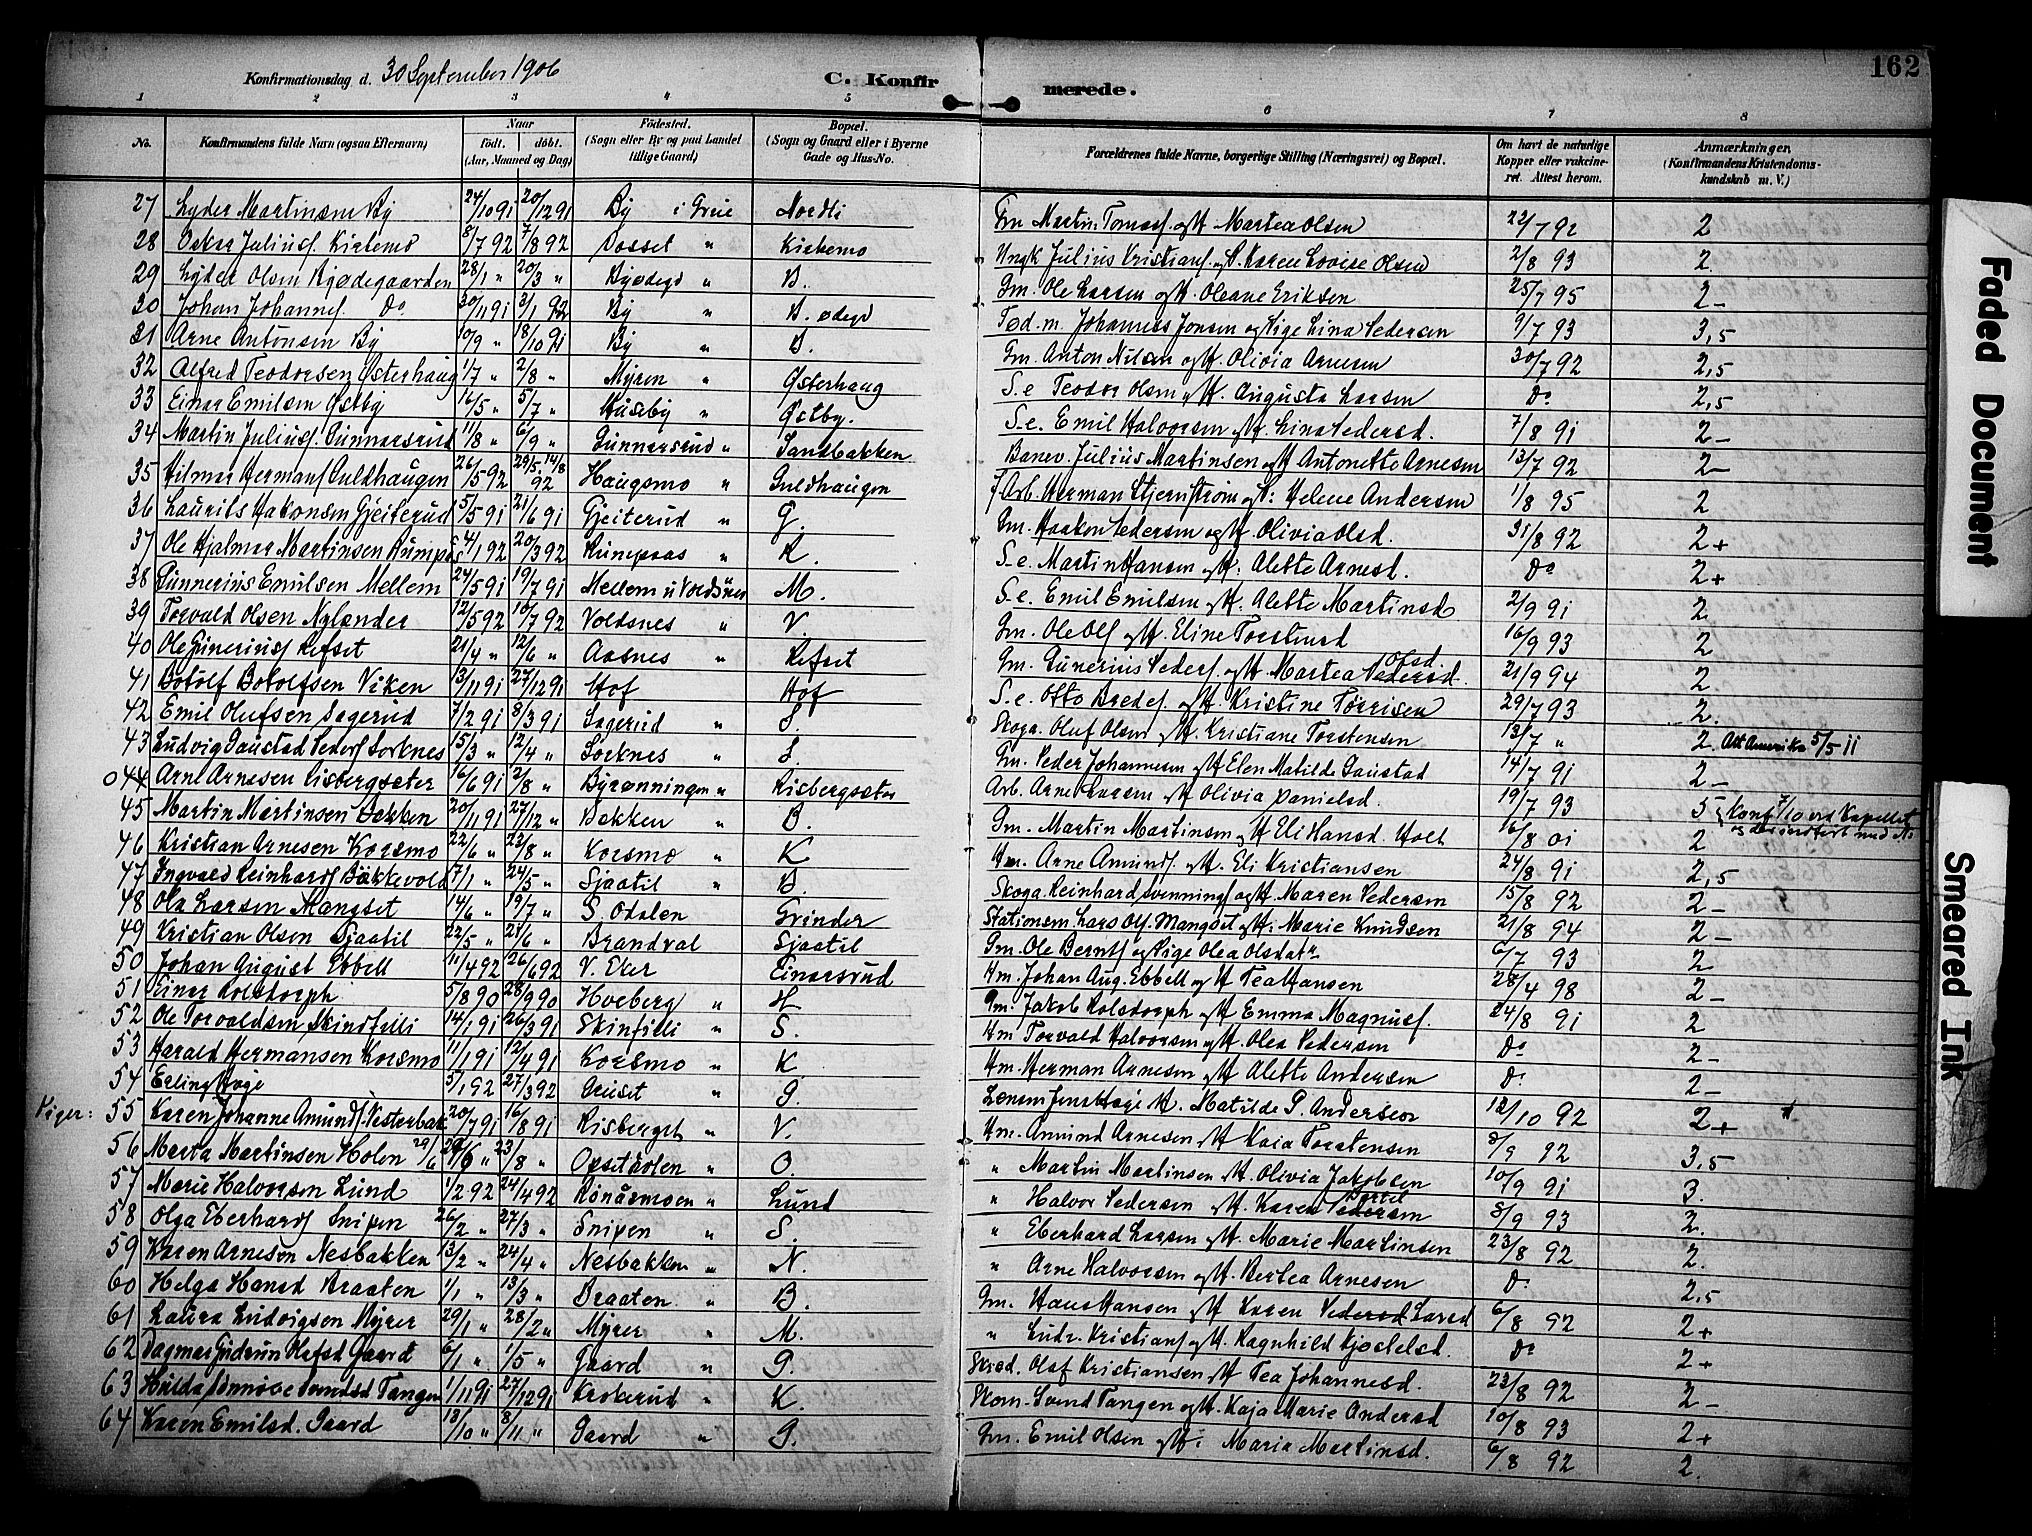 Konfirmationsdag d. 30 September 1906
C. Konfirmerede.
162
1 2 3 4 5 6 7 8
No. Konfirmandens fulde Navn (ogsaa Efternavn) Naar Født. døbt. (Aar, Maaned og Dag) Fødested. (Sogn eller By og paa Landet tillige Gaard) Bopæl. (Sogn og Gaard eller i Byerne Gade og Hus-No. Forældrenes fulde Navne, borgerlige Stilling (Næringsvei) og Bopæl. Om havt de naturlige Kopper eller vakcineret. Attest herom. Anmærkninger. (Konfirmandens Kristendomskundskab m. V.)
27 Lyder Martinsen By 24/10 91 20/12 91 By i Grue Nordli Gm Martin Tomass. og H. Martea Olsen 22/7 92 2
28 Oskar Juliuss. Kirkemo 8/7 92 7/8 92 Dossel " Kirkemo Ungk Julius Kristians. og P. Karen Lovise Olsen 2/8 93 2.
29 Lyder Olsen Byødegaarden 28/1 " 20/3 " Byødegd " B. Gm. Ole Larsen og H. Oleane Eriksen 25/7 95 2-
30 Johan Johannes. Do 30/11 91 3/1 92 By " B. ødegd Fød. m. Johannes Jonsen og Pige Lina Pedersen 9/7 93 3,5
31 Arne Antonsen By 10/9 " 18/10 91 By " B. Gm. Anton Nilsen og H. Olivia Arnesen 30/7 92 2,5
32 Alfred Teodorsen Østerhaug 1/7 " 2/8 " Myren " Østerhaug S. e Teodor Olsen og H. Augusta Larsen Do 2,5
33 Einar Emilsen Østby 16/5 " 5/7 " Huseby " Østby. S. e. Emil Halvorsen og H. Lina Pedersd. 7/8 91 2-
34 Martin Juliuss. Gunnarsrud 11/8 " 6/9 " Gunnarsrud " Sandbakken Banev. Julius Martinsen og H Antonette Arnesen 13/7 92 2-
35 Hilmar Hermans Guldhaugen 26/5 92 29/5. 14/8 92 Haugsmo " Guldhaugen f. Arb. Herman Stjernstrøm og P: Helene Andersen 1/8 95 2
36 Laurits Hakonsen Gjeiterud 5/5 91 21/6 91 Gjeiterud " G. Gm. Haakon Pedersen og H. Olivia Olsd. 31/8 92 2+
37 Ole Hjalmar Martinsen Rumpaas 4/1 92 20/3 92 Rumpaas " R. S. e. Martin Hansen og H: Alette Arnesd. Do 2+
38 Gunnerius Emilsen Mellem 24/5 91 19/7 91 Mellem u Voldsnes M. S. e. Emil Emilsen og H. Alette Martinsd 2/9 91 2
39 Torvald Olsen Nylænder 12/5 92 10/7 92 Voldsnes " V. Gm. Ole Ols. og H. Eline Torstensd 16/9 93 2
40 Ole Gunerius. Refset 21/4 " 12/6 " Aasnes " Refset Gm. Gunerius Peders. og H. Martea Olsd. Pedersd. 21/9 94 2
41 Botolf Botolfsen Viken 13/11 91 27/12 91 Hof Hof S. e. Otto Bredes. og H. Kristine Tørrisen 29/7 93 2.
42 Emil Olufsen Sagerud 7/2 91 8/3 91 Sagerud " S. Skoga. Oluf Olsen og H. Kristiane Torstensen 13/7 " 2.
43 Ludvig Gaustad Peders Sorknes 15/3 " 12/4 " Sorknes " S. Gm. Peder Johannesen og H Elen Matilde Gaustad 14/7 91 2- Att Amerika 5/5 11
044 Arne Arnesen Risbergseter 16/6 91 2/8 " Byrønningen " Risbergseter Arb. Arne Larsen og H Olivia Danielsd. 19/7 93 5
45 Martin Martinsen Bakken 20/11 91 27/12 " Bakken " B. Gm. Martin Martinsen og H Eli Hansd. Holt 16/8 01 2 Konf 7/10 ved Kapellet og der indført med No
46 Kristian Arnesen Korsmo 22/6 " 23/8 " Korsmo " K Hm. Arne Amunds og H. Eli Kristiansen 24/8 91 2,5
47 Ingvald Reinhards Bakkevold 17/1 " 24/5 " Sjaatil " B. Skoga. Reinhard Svennings og H. Maren Pedersen 15/8 92 2-
48 Ole Larsen Mangset 14/6 " 19/7 " S. Odalen Grinder Stationsm. Lars Ols. Mangset og H: Marie Knudsen 21/8 94 2-
49 Kristian Olsen Sjaatil 22/5 " 27/6 " Brandval Sjaatil Gm. Ole Bernts og Pige Olea Olsdatr 6/7 93 2
50 Johan August Ebbell 11/4 92 26/6 92 V. Eker Einarsrud Hm. Johan Aug. Ebbell og H Tea Hansen 28/4 98 2-
51 Einar Rolsdorph 5/8 90 28/9 90 Hveberg " H Gm. Jakob Rolsdorph og H Emma Magnus. 24/8 91 2
52 Ole Torvaldsen Skindfilli 14/1 91 26/3 91 Skinfilli " S. Hm Torvald Halvorsen og H. Olea Pedersen Do 2-
53 Harald Hermansen Korsmo 11/1 91 12/4 91 Korsmo " K Hm. Herman Arnesen og H. Alette Andersen Do 2-
54 Erling Hoje 5/1 92 27/3 92 Gruset " G. Lensm Jens Hoje H. Matilde P. Andersen 12/10 92 2+
Piger: 55 Karen Johanne Amunds. Vesterbak 20/7 91 16/8 91 Risberget " V. Hm. Amund Arnesen og H Kaia Torstensen 3/9 92 3,5
56 Marta Martinsen Holen 29/6 " 23/8 " Opsetdolen " O. " Martin Martinsen og H. Olivia Jakobsen 10/9 91 3.
57 Marie Halvorsen Lund 1/2 92 24/4 92 Rönåsmoen " Lund " Halvor Pedersen og H. Karen Pedersen 3/9 93 2.
58 Olga Eberhards Snipen 26/2 " 27/3 " Snipen " S. " Eberhard Larsen og H. Marie Martinsen 23/8 92 2.
59 Karen Arnesen Nesbakken 13/2 " 24/4 " Nesbakken " N. " Arne Halvorsen og H. Bertea Arnesen Do 2,5
60 Helga Hansd Braaten 1/1 " 13/3 " Braaten " B. Gm. Hans Hansen og H Karen Pedersd Larsd 6/8 92 2+
61 Laura Ludvigsen Myrer 29/1 " 28/2 " Myrer " M. " Ludv. Kristians og H. Ragnhild Kjøstelsd. Do 2+
62 Dagmar Gudrun Olafsd Gaard 6/1 " 1/5 " Gaard " G. Skræd. Olaf Kristiansen og H Tea Johannesd. 23/8 92 2-
63 Hulda Synnøve Svendsd Tangen 1/11 91 27/12 91 Krokerud " K. Skom. Svend Tangen og H. Kaja Marie Andersd 10/8 93 2+
64 Karen Emilsd. Gaard 18/10 " 8/11 " Gaard " G. Gm. Emil Olsen og H: Maria Martinsd. 6/8 92 2.
Faded Document
Smeared Ink